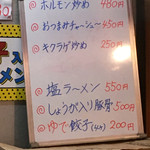 ◎ホルモン炒め 480円
◎おつまみチャーシュー 450円
◎キクラゲ炒め 250円
◎塩ラーメン 550円
◎しょうが入り豚骨 500円
◎ゆで餃子(4ヶ) 200円